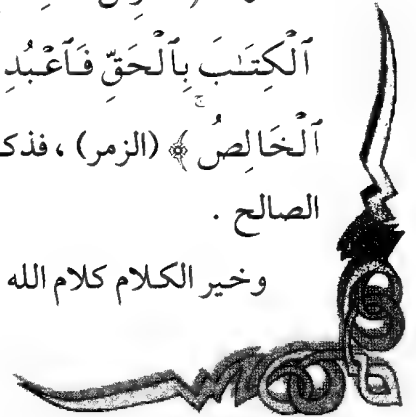 ٱلْكِتَـٰبَ بِٱلْحَقِّ فَٱعْبُدِ
ٱلْخَالِصُ ۚ ﴾ (الزمر) ، فذكـ
الصالح .
وخير الكـلام كلام الله